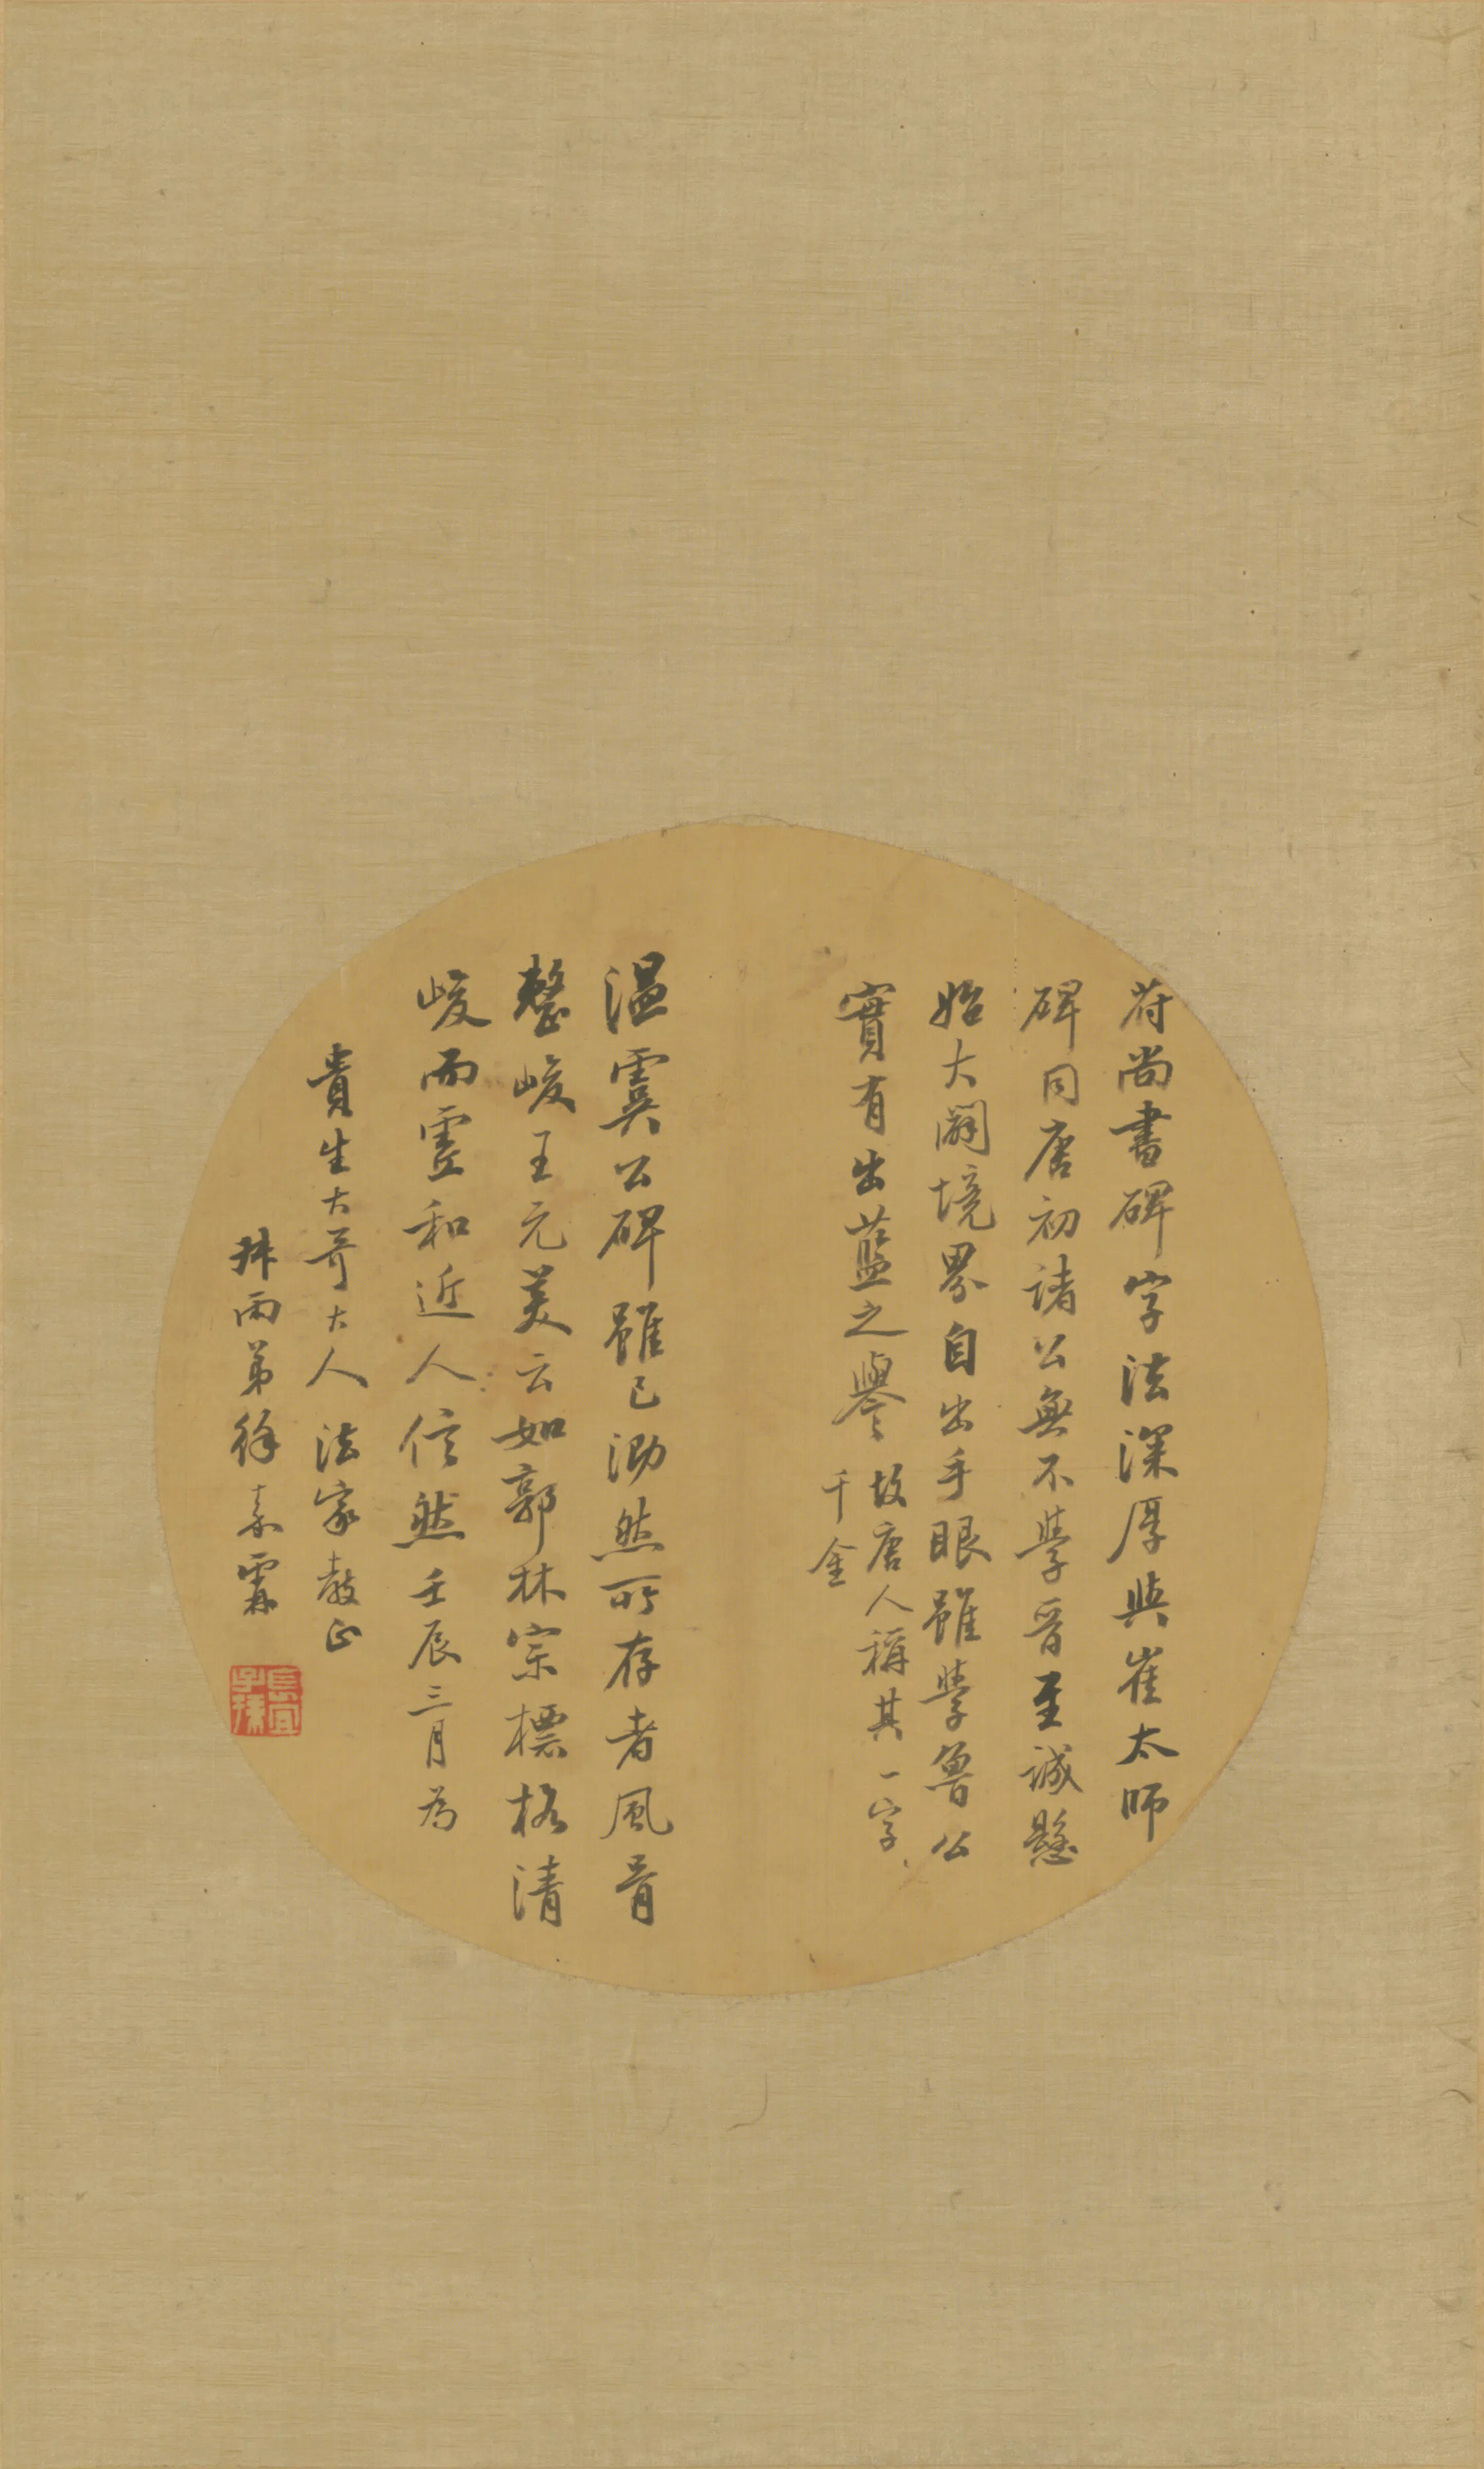 苻尚書碑字法深厚與崔太師
碑同唐初諸公無不學晉至誠懸
始大闢境界自出手眼雖學魯公
實有出藍之譽故唐人稱其一字
千金
溫虞公碑雖已泐然所存者風骨
整峻王元美云如郭林宗標格清
峻而虛和近人信然壬辰三月為
貴生大哥大人法家教正
琳雨弟徐素霖
長宜
子孫